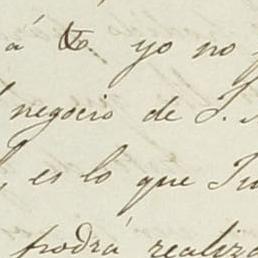 á Vd. yo no
negocio de S.
, es lo que
podrá realiza